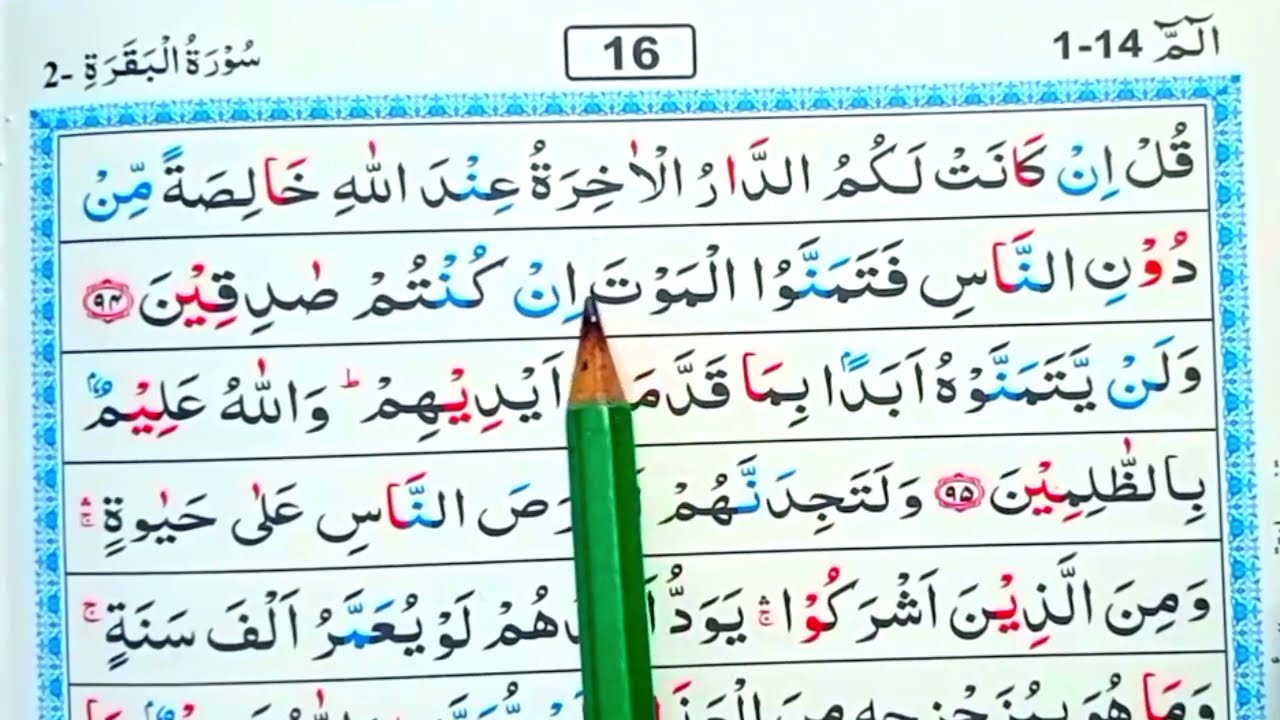 الٓمّٓ 1-14
16
سُوْرَةُ الْبَقَرَةِ -2
قُلْ اِنْ كَانَتْ لَكُمُ الدَّارُ الْاٰخِرَةُ عِنْدَ اللّٰهِ خَالِصَةً مِّنْ
دُوْنِ النَّاسِ فَتَمَنَّوُا الْمَوْتَ اِنْ كُنْتُمْ صٰدِقِيْنَ ۹۴
وَلَنْ يَّتَمَنَّوْهُ اَبَدًۢا بِمَا قَدَّمَ اَيْدِيْهِمْ ؕ وَاللّٰهُ عَلِيْمٌۢ
بِالظّٰلِمِيْنَ ۹۵ وَلَتَجِدَنَّهُمْ النَّاسِ عَلٰى حَيٰوةٍ ۛۚ
وَمِنَ الَّذِيْنَ اَشْرَكُوْا ۛۚ يَوَدُّ لَوْ يُعَمَّرُ اَلْفَ سَنَةٍ ۚ
وَمَا هُوَ